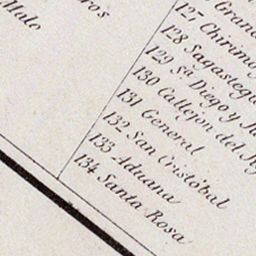 Malo
127 Chirino
128 Sagastegu
129 Sa. Diego y Ju
130 Callejon del
131 General
132 San Cristóbal
133 Aduana
134 Santa Rosa